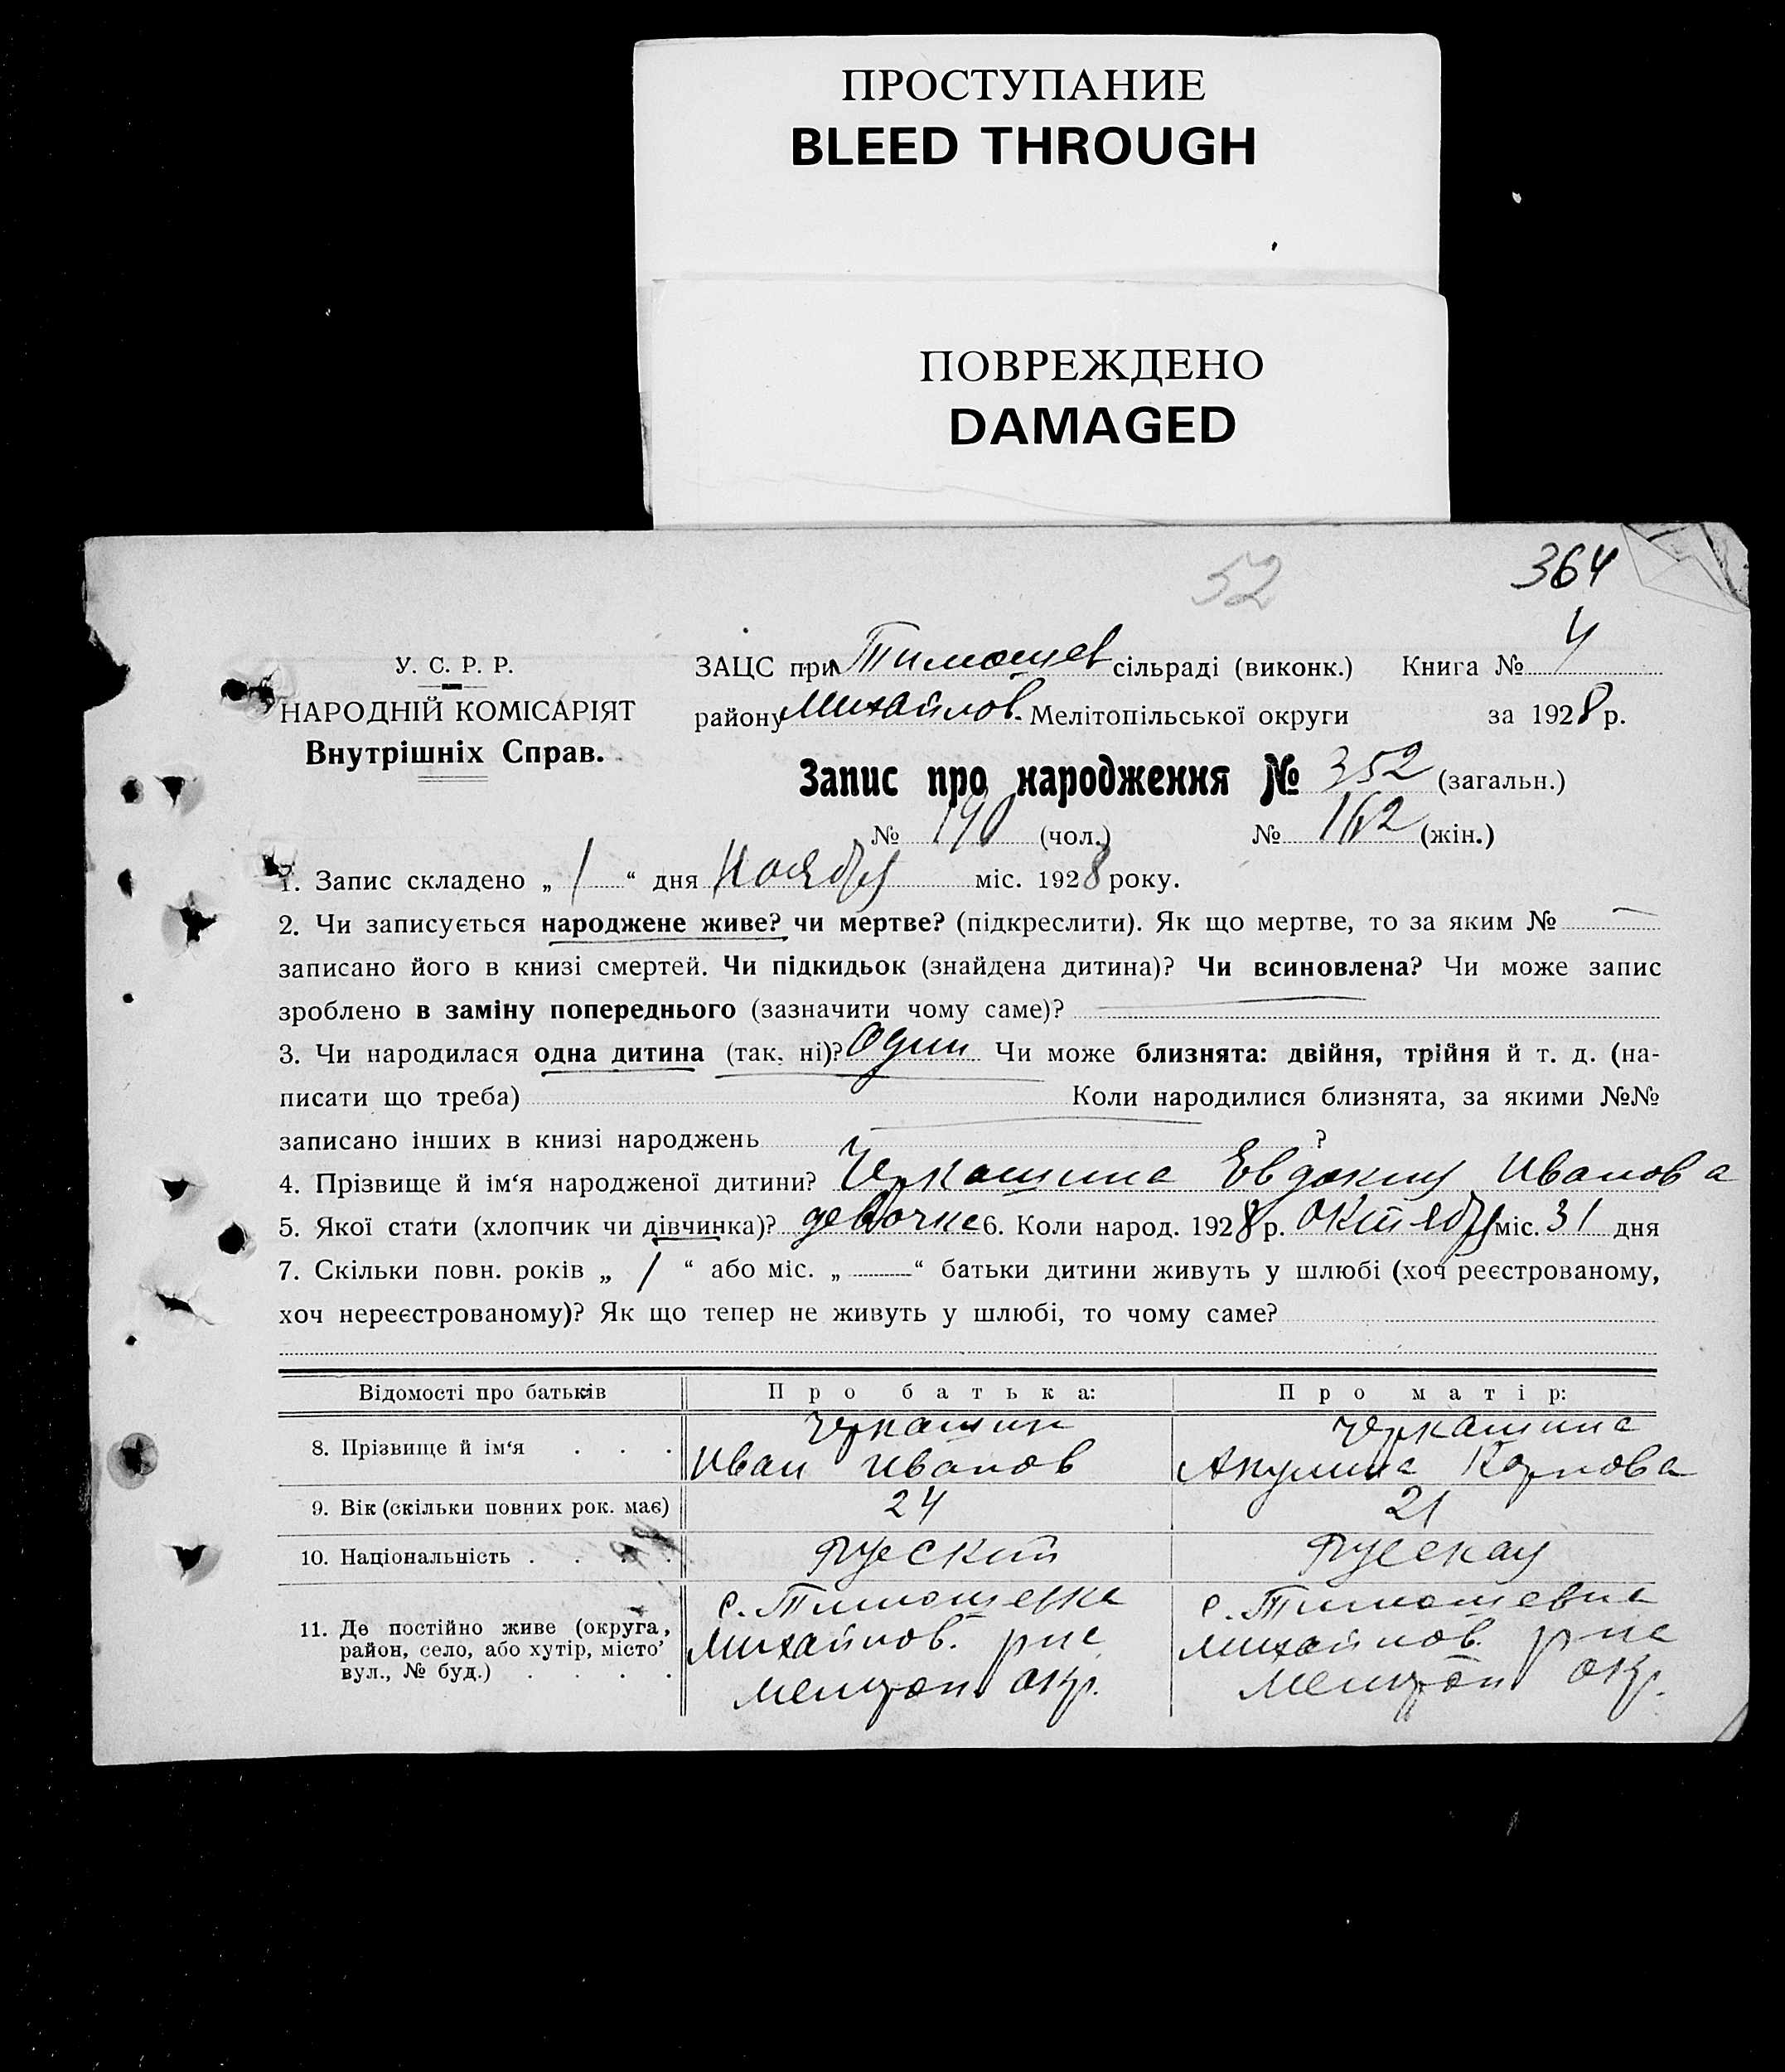 ПРОСТУПАНИЕ
BLEED THROUGH
ПОВРЕЖДЕНО
DAMAGED
52
364
У. С. Р. Р.
НАРОДНІЙ КОМІСАРІЯТ
Внутрішніх Справ.
ЗАЦС при Тимошев сільраді (виконк.) Книга № 4
району Михайлов. Мелітопільської округи за 1928 р.
Запис про народження № 352 (загальн.)
№ 190 (чол.) № 162 (жін.)
1. Запис складено „ 1 “ дня Ноября міс. 1928 року.
2. Чи записується народжене живе? чи мертве? (підкреслити). Як що мертве, то за яким № —
записано його в книзі смертей. Чи підкидьок (знайдена дитина)? Чи всиновлена? Чи може запис
зроблено в заміну попереднього (зазначити чому саме)?
3. Чи народилася одна дитина (так, ні)? Один Чи може близнята: двійня, трійня й т. д. (на-
писати що треба) Коли народилися близнята, за якими №№
записано інших в книзі народжень ?
4. Прізвище й ім‘я народженої дитини? Черкашина Евдокия Иванова
5. Якої стати (хлопчик чи дівчинка)? девочка 6. Коли народ. 1928 р. Октября міс. 31 дня
7. Скільки повн. років „ 1 “ або міс. „ — “ батьки дитини живуть у шлюбі (хоч реєстрованому,
хоч нереєстрованому)? Як що тепер не живуть у шлюбі, то чому саме?
Відомості про батьків Про батька: Про матір:
8. Прізвище й ім‘я . . . Черкашин Иван Иванов Черкашина Акулина Карпова
9. Вік (скільки повних рок. має) 24 21
10. Національність . . . . Руский Русская
11. Де постійно живе (округа, район, село, або хутір, місто, вул., № буд.) . . . .
с. Тимошевка с. Тимошевка
Михайлов. рна Михайлов. рна
Мелитоп окр. Мелитоп окр.